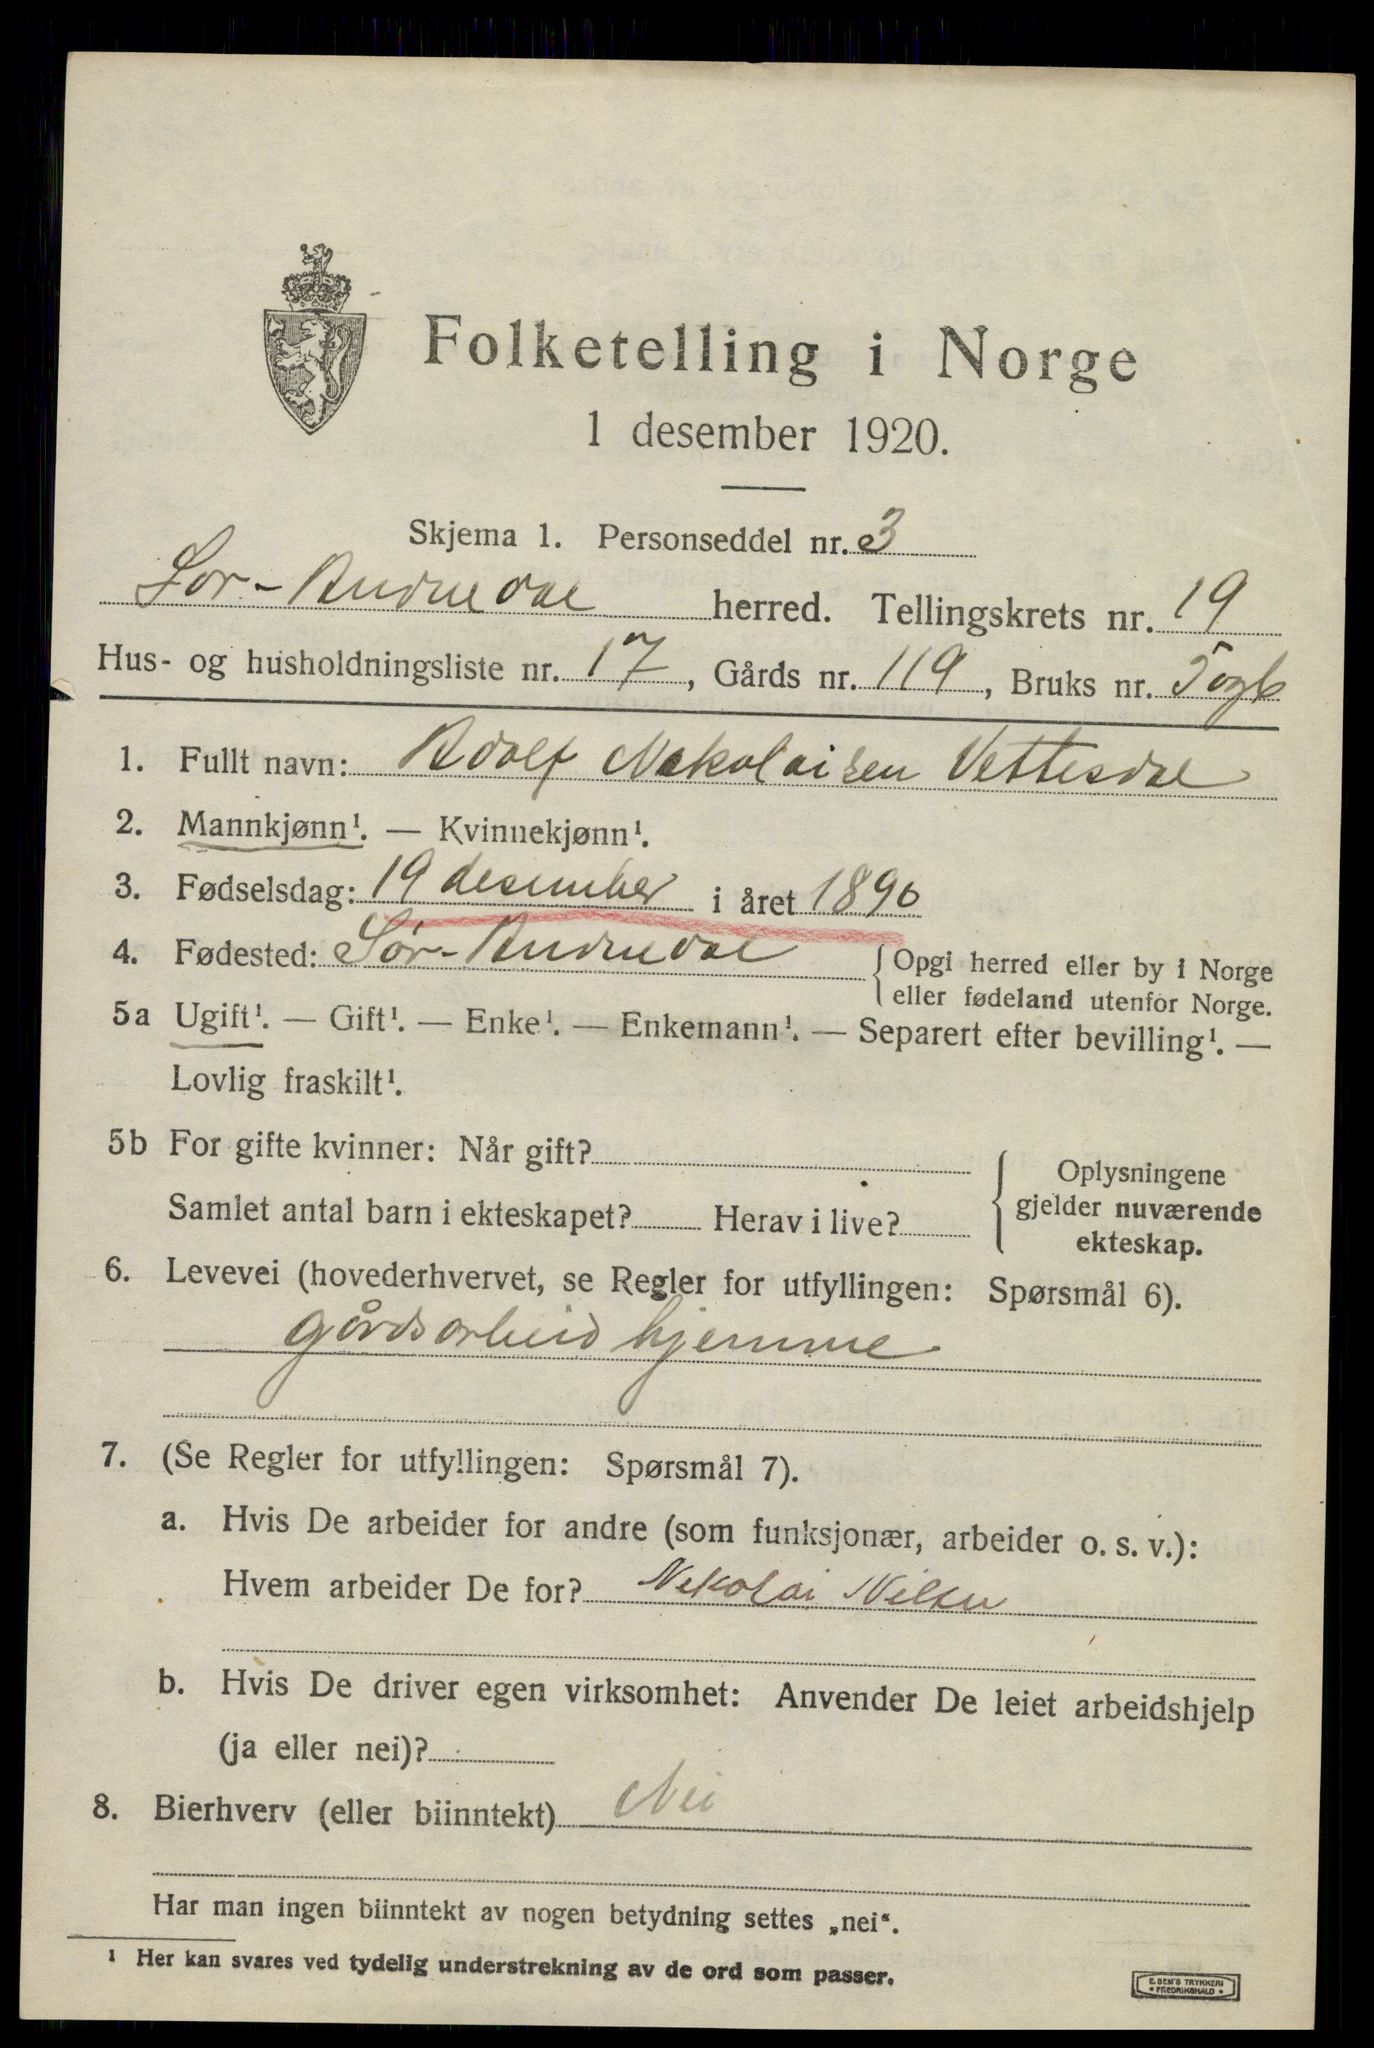 Folketelling i Norge
1 desember 1920.
Skjema 1. Personseddel nr. 3
Sør-Audnedal herred. Tellingskrets nr. 19
Hus- og husholdningsliste nr. 17, Gårds nr. 119, Bruks nr. 5 og 6
1. Fullt navn: Adolf Nekolaisen Vettesdal
2. Mannkjønn¹. — Kvinnekjønn¹.
3. Fødselsdag: 19 desember i året 1890
4. Fødested: Sør-Audnedal { Opgi herred eller by i Norge
eller fødeland utenfor Norge.
5a Ugift¹. — Gift¹. — Enke¹. — Enkemann¹. — Separert efter bevilling¹. —
Lovlig fraskilt¹.
5b For gifte kvinner: Når gift?
Samlet antal barn i ekteskapet? Herav i live?
{ Oplysningene
gjelder nuværende
ekteskap.
6. Levevei (hovederhvervet, se Regler for utfyllingen: Spørsmål 6).
gårdsarbeid hjemme
7. (Se Regler for utfyllingen: Spørsmål 7).
a. Hvis De arbeider for andre (som funksjonær, arbeider o. s. v.):
Hvem arbeider De for? Nekolai
b. Hvis De driver egen virksomhet: Anvender De leiet arbeidshjelp
(ja eller nei)?
8. Bierhverv (eller biinntekt) Nei
Har man ingen biinntekt av nogen betydning settes „nei“.
¹ Her kan svares ved tydelig understrekning av de ord som passer.
E. SEM'S TRYKKERI
• FREDRIKSHALD •